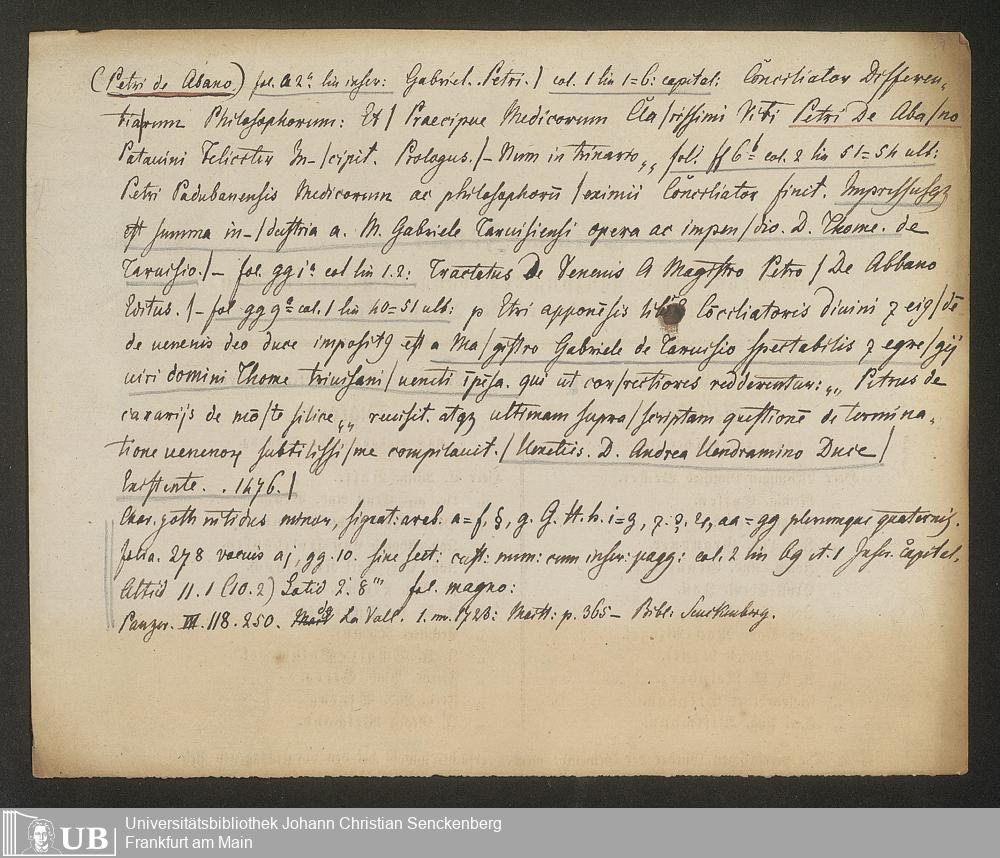 (Petri de Abano) fol. a 2ᵃ lin inser: Gabriel. Petri. / col. 1 lin 1=6: capital: Cōnciliator Differen-
tiarum Philosophorum: Et / Praecipue Medicorum Cla/rissimi Viri Petri De Aba/no
Patauini Feliciter In-/cipit. Prologus. /- Num in trinario,, fol. ff 6ᵇ = col. 2 lin 51=54 ult:
Petri Padubanensis Medicorum ac philosophorū /eximii Cōnciliator finit. Impressusqz
est summa in-/dustria a. M. Gabriele Taruisiensi opera ac impen/dio. D. Thome. de
Taruisio. /- fol. gg iᵃ col lin 1.2: Tractatus De Venenis A Magistro Petro / De Abbano
Editus. /- fol gg 9ᵃ = col. 1 lin 40=51 ult: p Etri apponēsis Cōciliatoris diuini ⁊ eiꝫ/dē
de uenenis deo duce impositꝰ est a Ma/gistro Gabriele de Taruisio spectabilis ⁊ egre/gij
uiri domini Thome triuisani / ueneti īpēsa. qui ut cor/rectiores redderentur: ,, Petrus de
cararijs de mō/te silice ,, reuisit. atqz ultimam supra/scriptam questionē de termina-
tione uenenoꝝ subtilissi/me compilauit. / Uenetiis. D. Andrea Uendramino Duce /
Existente. . 1476. /
Char. goth nitidus minor, signat: arab. plerumque quaternis.
folia. 278 vacuis a j, gg. 10. sine cust: num: cum inser: pagg: col. 2 lin Capital.
Altid 11. 1 (10. 2) Latid 2. 8''' fol. magno:
Panzer. III. 118. 250. La Vall. 1. nr. 1723: Maitt: p. 365 - Bibl: Senckenberg.
UB
Universitätsbibliothek Johann Christian Senckenberg
Frankfurt am Main